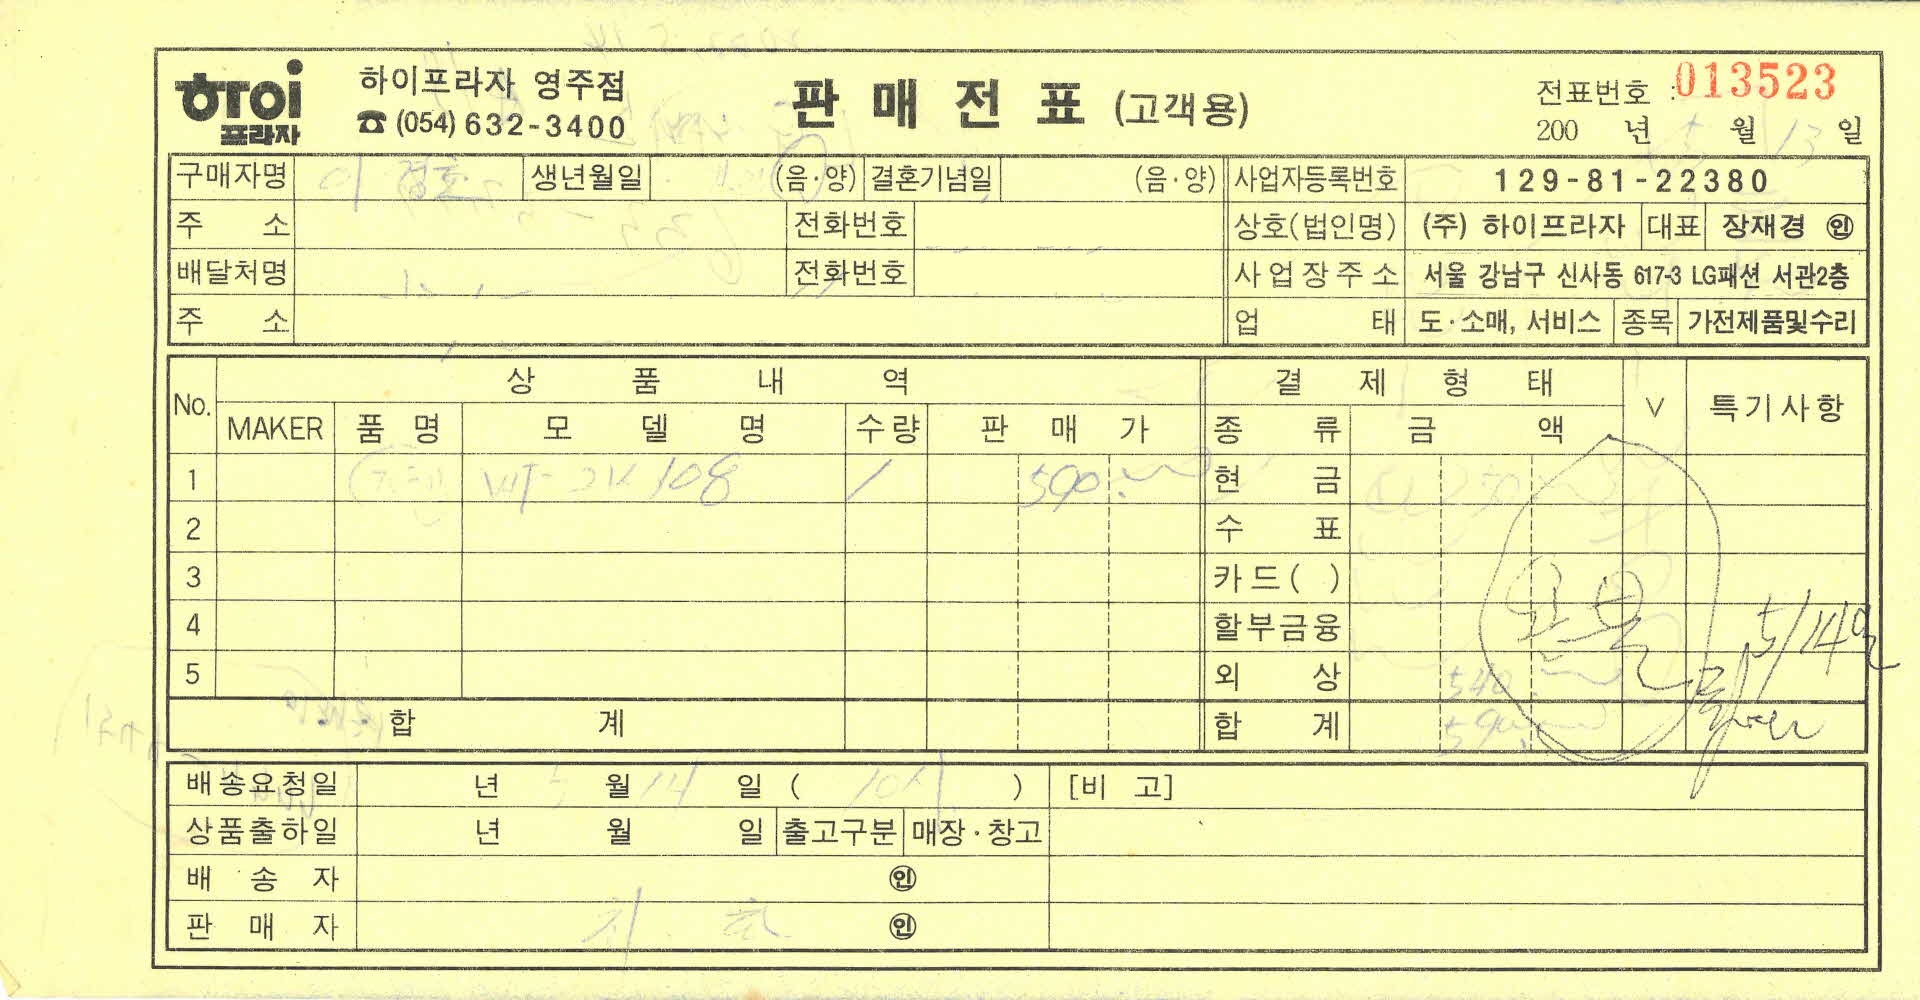 하이프라자
하이프라자 영주점
☎ (054) 632-3400
판 매 전 표 (고객용)
전표번호 : 013523
200 년 5 월 13 일
구매자명 이 정호 생년월일 (음·양) 결혼기념일 (음·양) 사업자등록번호 129-81-22380
주 소 전화번호 상호(법인명) (주) 하이프라자 대표 장재경 ㊞
배달처명 전화번호 사업장주소 서울 강남구 신사동 617-3 LG패션 서관2층
주 소 업 태 도·소매, 서비스 종목 가전제품및수리
No. 상 품 내 역 결 제 형 태 V 특기사항
MAKER 품 명 모 델 명 수량 판 매 가 종 류 금 액
1 108 1 590 현 금 50
2 수 표
3 카드( )
4 할부금융
5 외 상 540
합 계 합 계 590
완불
5/14일
배송요청일 년 5 월 14 일 ( 10시 ) [비 고]
상품출하일 년 월 일 출고구분 매장·창고
배 송 자 ㊞
판 매 자 ㊞